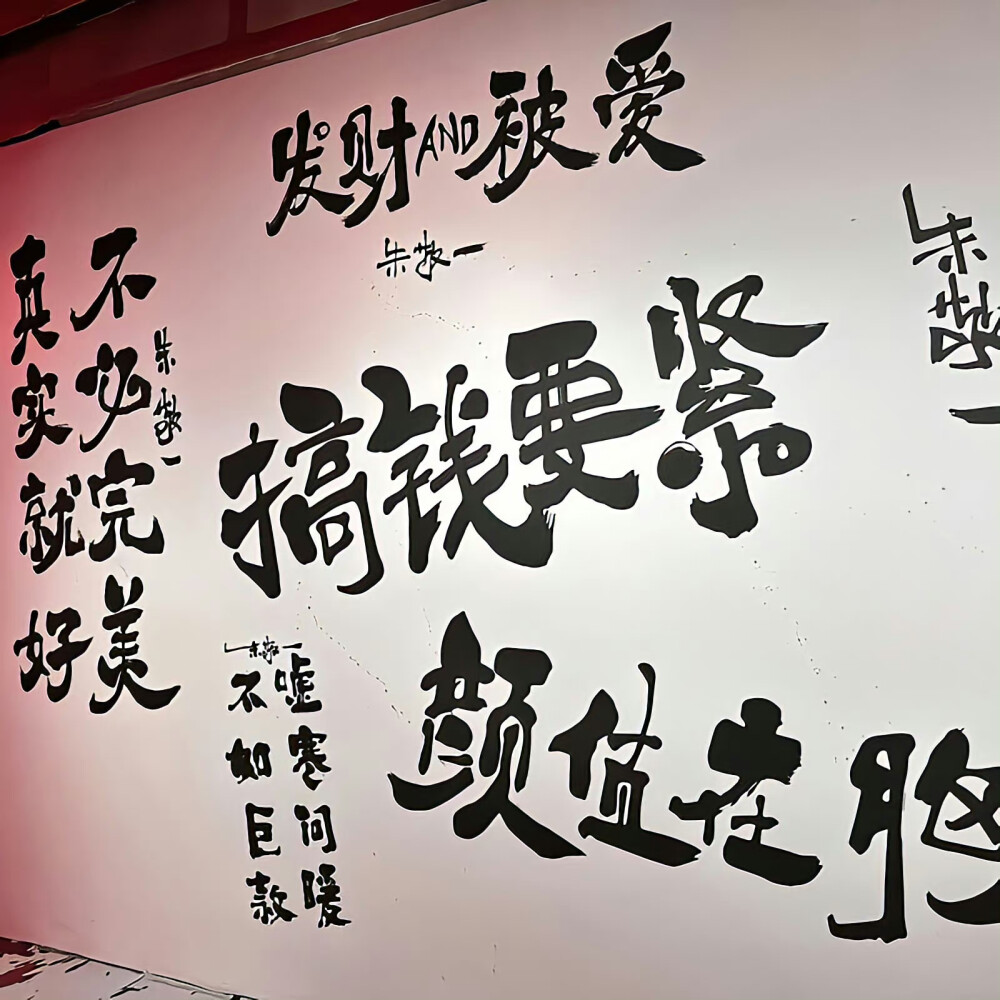 发财AND被爱
朱敬一
不必完美
真实就好
朱敬一
搞钱要紧
朱敬一
嘘寒问暖
不如巨款
朱敬一
颜值在胸